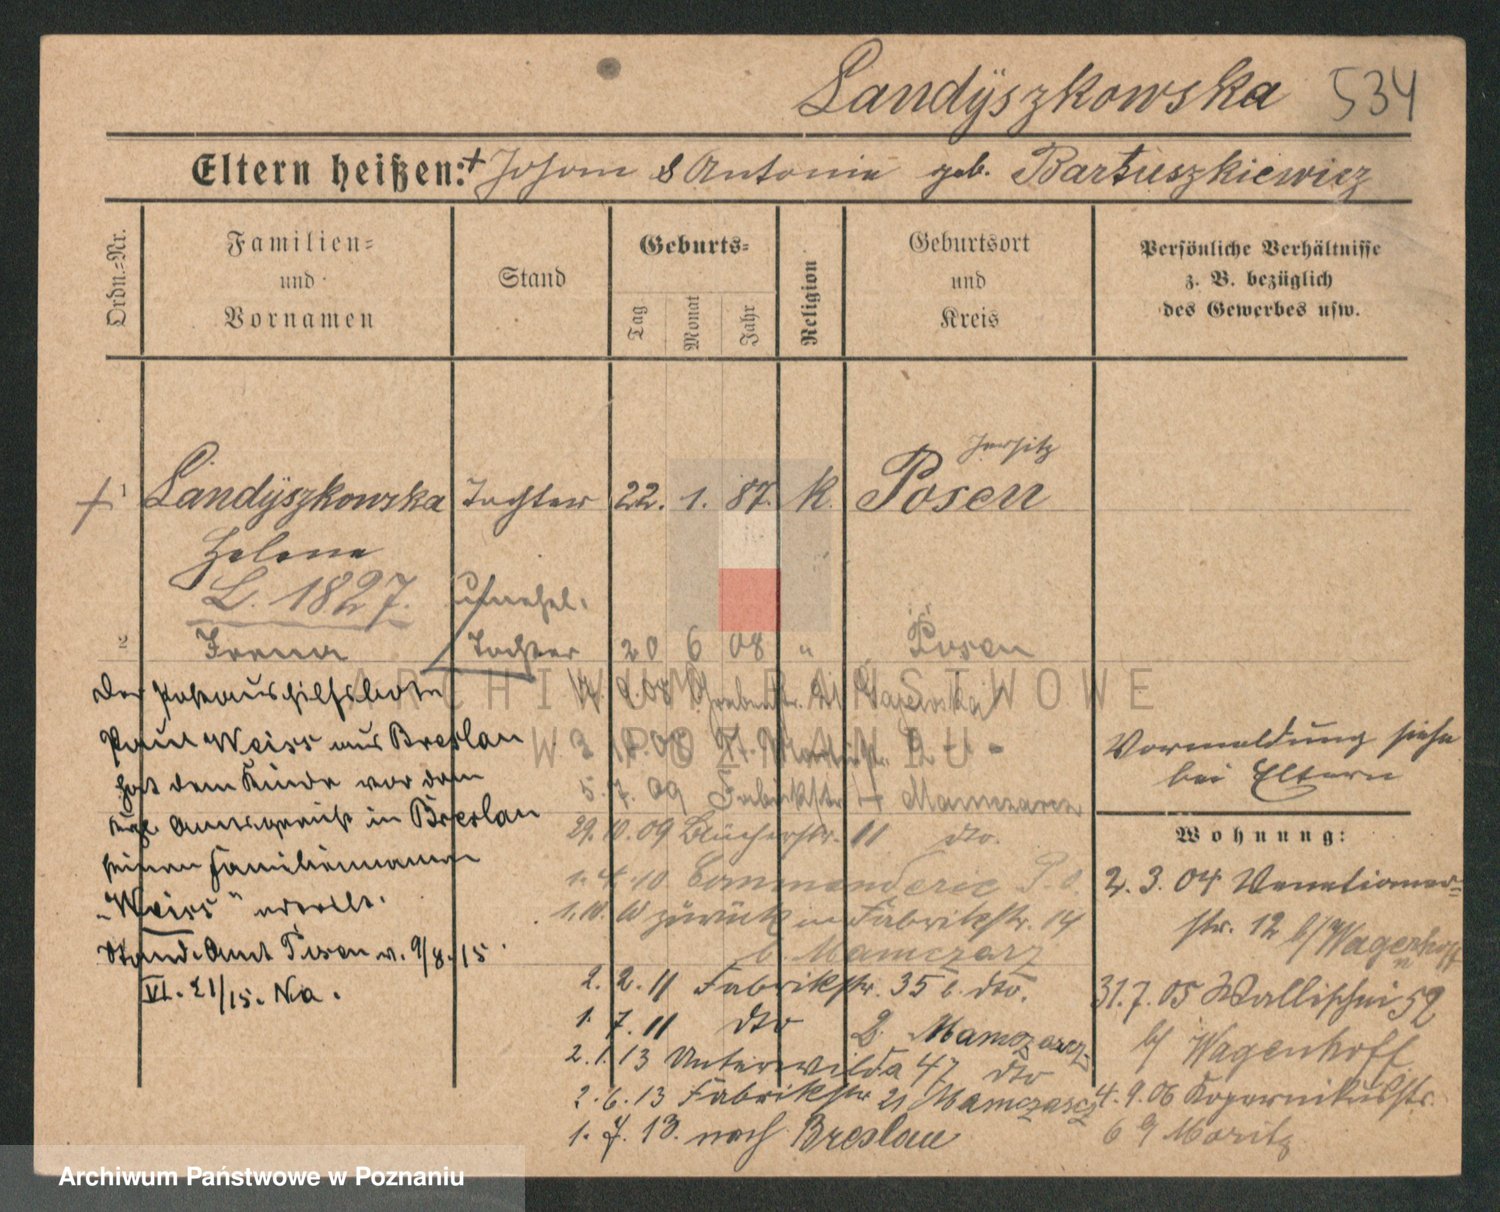 Landÿszkowska 534
Eltern heißen: + Johann & Antonie geb. Bartuszkiewicz
Ordn.-Nr.
Familien- und Vornamen
Stand
Geburts-
Tag
Monat
Jahr
Religion
Geburtsort und Kreis
Persönliche Verhältnisse
z. B. bezüglich
des Gewerbes usw.
Jersitz
1 Landÿszkowska Tochter 22. 1. 87. k. Posen
Helene
L. 1827. unehel.
2 Irena Tochter 20 6 08 " Posen
Der Postaushilfsbote
Paul Weiss aus Breslau
hat dem Kinde vor dem
kgl. Amtsgericht in Breslau
seinen Familiennamen
„Weiss" erteilt.
Stand. Amt Posen v. 9/8.15.
VI. 21/15. Na.
5.7.09 Fabrikstr. Mamczarz
29.10.09 Blücherstr. 11 dto.
1.4.10 Commenderie
1.10.10 zurück in Fabrikstr. 14
b. Mamczarz
2.2.11 Fabrikstr. 35 b. dto.
1.7.11 dto Mamczarz
2.1.13 Unterwilda 47 dto
2.6.13 Fabrikstr 21 Mamczarz
1.7.13. nach Breslau
Vormeldung siehe
bei Eltern
Wohnung:
2.3.04 Venetianer-
str. 12 b/ Wagenhoff
31.7.05 Wallischei 52
b/ Wagenhoff
4.9.06 Kopernikusstr.
6 Moritz
ARCHIWUM PAŃSTWOWE
W POZNANIU
Archiwum Państwowe w Poznaniu